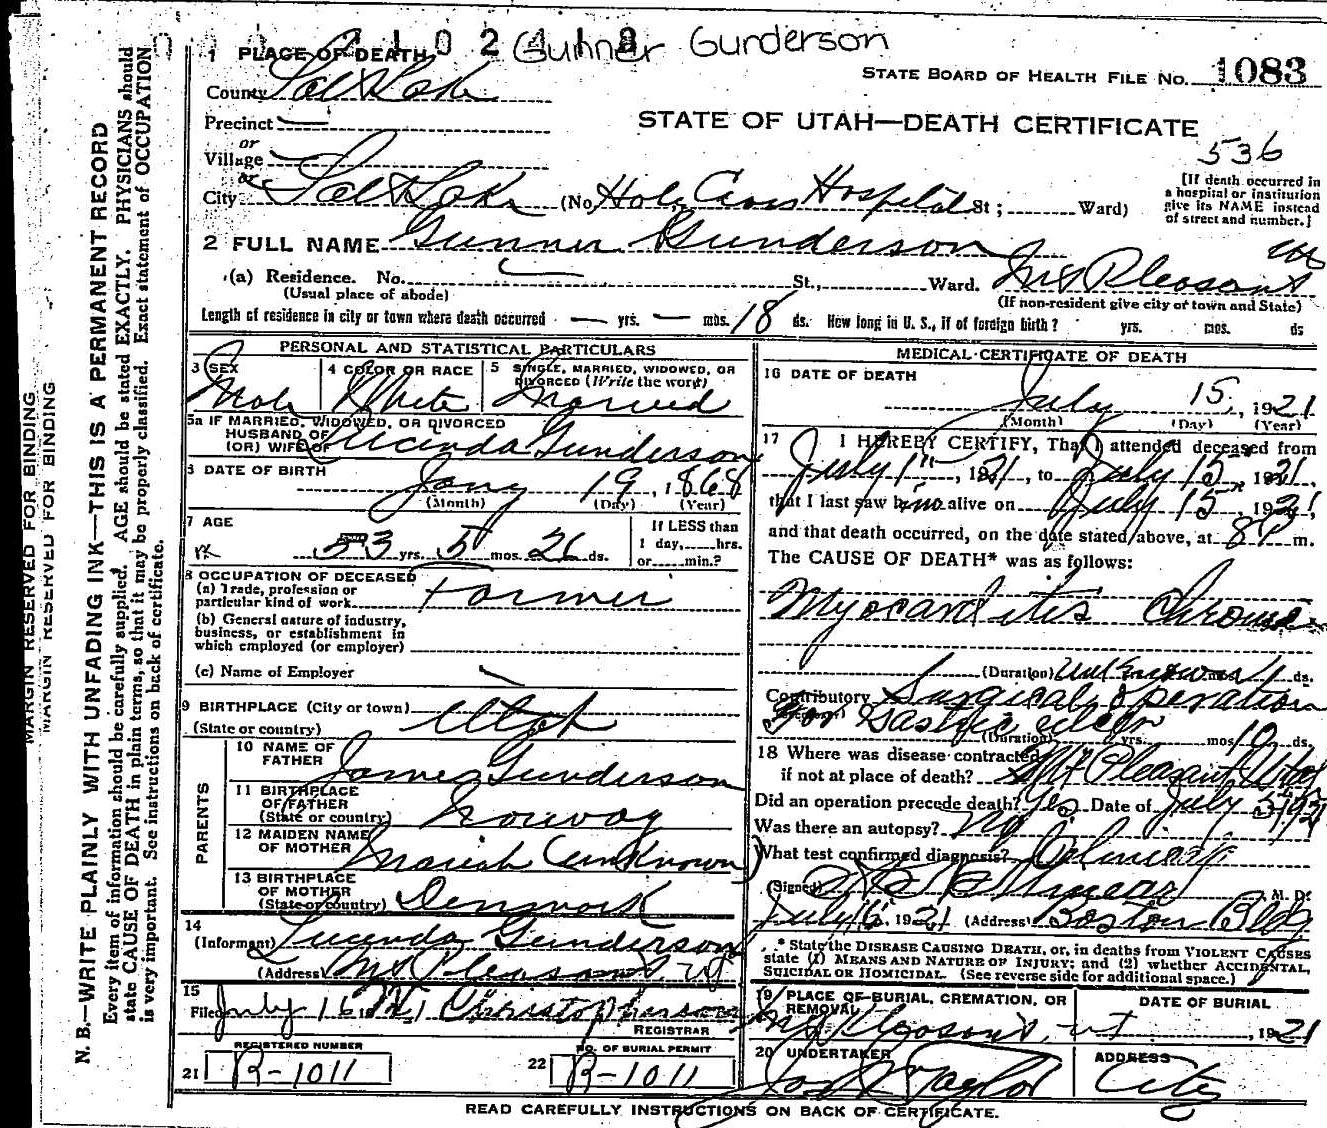 2 1 0 2 4 1 8 Gunner Gunderson
1 PLACE OF DEATH
STATE BOARD OF HEALTH FILE NO. 1083
County Salt Lake
Precinct
STATE OF UTAH—DEATH CERTIFICATE
or
Village
536
or
City Salt Lake (No. Holy Cross Hospital St ; Ward)
[If death occurred in a hospital or institution give its NAME instead of street and number.]
2 FULL NAME Gunner Gunderson
(a) Residence. No. St., Ward. Mt Pleasant Ut
(Usual place of abode)
(If non-resident give city or town and State)
Length of residence in city or town where death occurred — yrs. — mos. 18 ds. How long in U. S., if of foreign birth? yrs. mos. ds
PERSONAL AND STATISTICAL PARTICULARS
3 SEX
Male
4 COLOR OR RACE
White
5 SINGLE, MARRIED, WIDOWED, OR DIVORCED (Write the word)
Married
5a IF MARRIED, WIDOWED, OR DIVORCED
HUSBAND OF
(OR) WIFE OF Lucinda Gunderson
6 DATE OF BIRTH
Jany 19, 1868
(Month) (Day) (Year)
7 AGE
53 yrs. 5 mos. 26 ds.
If LESS than
1 day, hrs.
or min.?
8 OCCUPATION OF DECEASED
(a) Trade, profession or
particular kind of work Farmer
(b) General nature of industry,
business, or establishment in
which employed (or employer)
(c) Name of Employer
9 BIRTHPLACE (City or town) Utah
(State or country)
PARENTS
10 NAME OF
FATHER James Gunderson
11 BIRTHPLACE
OF FATHER
(State or country) Norway
12 MAIDEN NAME
OF MOTHER Mariah (unknown)
13 BIRTHPLACE
OF MOTHER
(State or country) Denmark
14
(Informant) Lucinda Gunderson
(Address) Mt Pleasant, Ut
15
Filed July 16 Christopherson
REGISTRAR
REGISTERED NUMBER
21 R-1011
NO. OF BURIAL PERMIT
22 R-1011
MEDICAL CERTIFICATE OF DEATH
16 DATE OF DEATH
July 15, 1921
(Month) (Day) (Year)
17 I HEREBY CERTIFY, That I attended deceased from
July 1st, 1921, to July 15, 1921,
that I last saw him alive on July 15, 1921,
and that death occurred, on the date stated above, at 8 P m.
The CAUSE OF DEATH* was as follows:
Myocarditis Chronic
(Duration) Unknown ds.
Contributory Surgical operation
for Gastric ulcer
(Duration) yrs. mos 10 ds.
18 Where was disease contracted
if not at place of death? Mt Pleasant Utah
Did an operation precede death? Yes Date of July 5th 1921
Was there an autopsy? No
What test confirmed diagnosis?
(Signed) M. D.
July 16, 1921 (Address) Boston Bldg
* State the DISEASE CAUSING DEATH, or, in deaths from VIOLENT CAUSES
state (1) MEANS AND NATURE OF INJURY; and (2) whether ACCIDENTAL,
SUICIDAL OR HOMICIDAL. (See reverse side for additional space.)
19 PLACE OF BURIAL, CREMATION, OR
REMOVAL
Mt Pleasant, ut
DATE OF BURIAL
1921
20 UNDERTAKER
Taylor
ADDRESS
City
READ CAREFULLY INSTRUCTIONS ON BACK OF CERTIFICATE.
MARGIN RESERVED FOR BINDING
MARGIN RESERVED FOR BINDING
N. B.—WRITE PLAINLY WITH UNFADING INK—THIS IS A PERMANENT RECORD
Every item of information should be carefully supplied. AGE should be stated EXACTLY. PHYSICIANS should
state CAUSE OF DEATH in plain terms, so that it may be properly classified. Exact statement of OCCUPATION
is very important. See instructions on back of certificate.